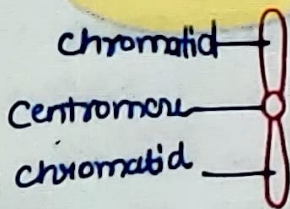 chromatid
centromere
chromatid